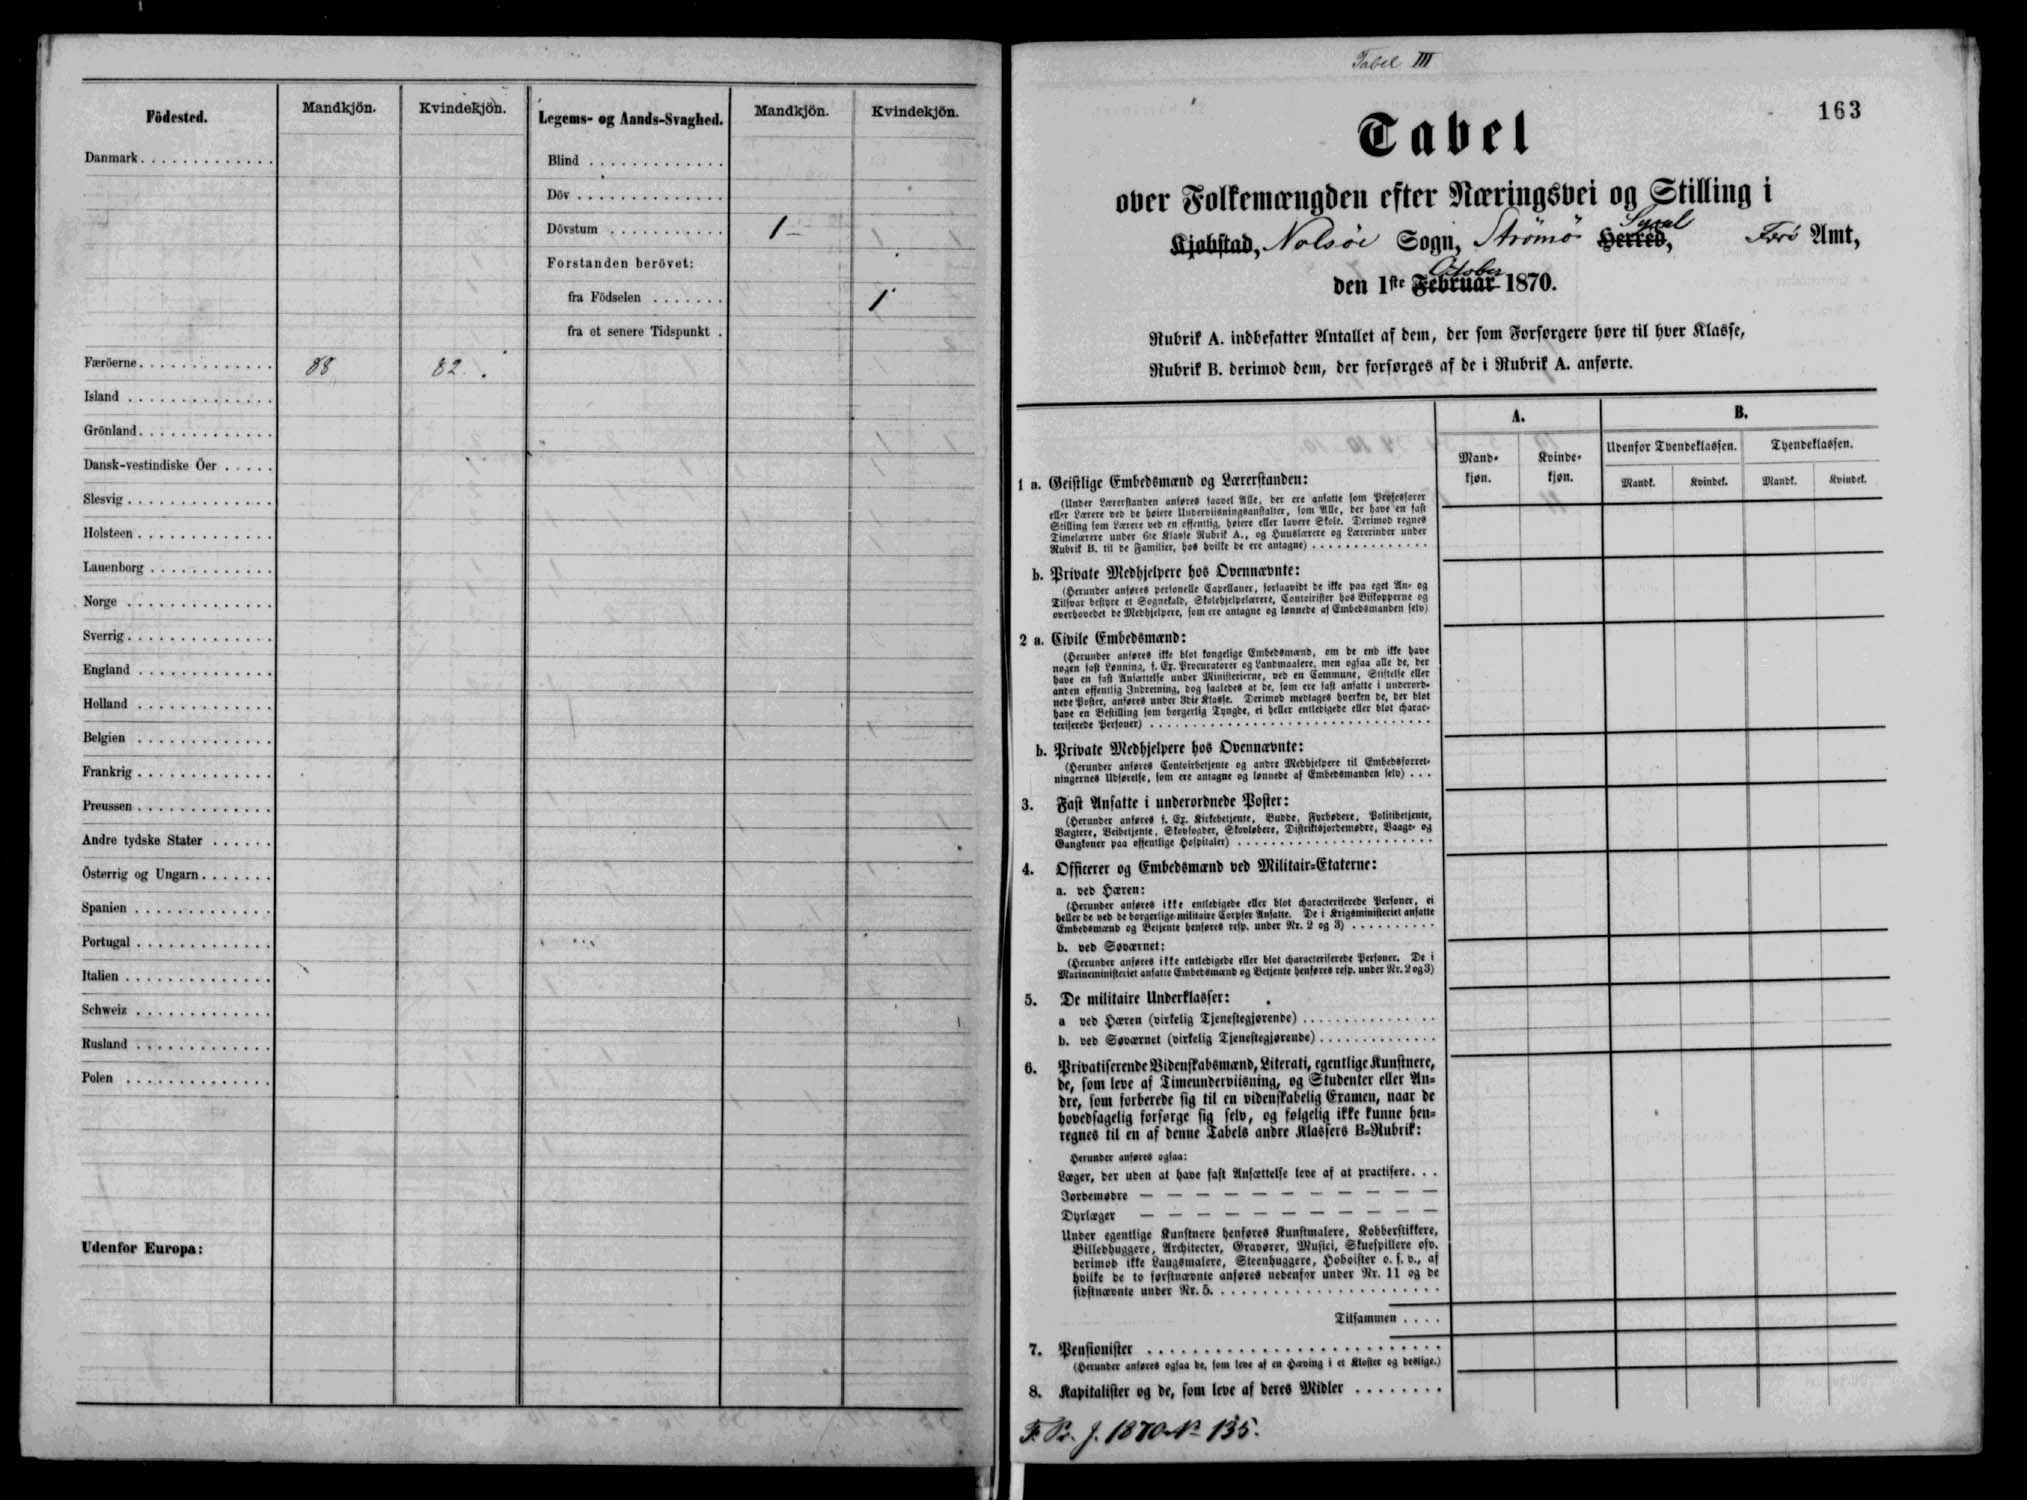 Födested.
Mandkjön.
Kvindekjön.
Legems- og Aands-Svaghed.
Mandkjön.
Kvindekjön.
Danmark
Blind
Döv
Dövstum 1
Forstanden berövet:
fra Födselen 1
fra et senere Tidspunkt
Færöerne 88 82
Island
Grönland
Dansk-vestindiske Öer
Slesvig
Holsteen
Lauenborg
Norge
Sverrig
England
Holland
Belgien
Frankrig
Preussen
Andre tydske Stater
Österrig og Ungarn
Spanien
Portugal
Italien
Schweiz
Rusland
Polen
Udenfor Europa:
Tabel III
163
Tabel
over Folkemængden efter Næringsvei og Stilling i
Syssel
Kjøbstad, Nolsöe Sogn, Strömö Herred, Færö Amt,
October
den 1ste Februar 1870.
Rubrik A. indbefatter Antallet af dem, der som Forsørgere høre til hver Klasse,
Rubrik B. derimod dem, der forsørges af de i Rubrik A. anførte.
A.
B.
Mand-
kjøn.
Kvinde-
kjøn.
Udenfor Tyendeklassen.
Tyendeklassen.
Mandk.
Kvindek.
Mandk.
Kvindek.
1 a. Geistlige Embedsmænd og Lærerstanden:
(Under Lærerstanden anføres saavel Alle, der ere ansatte som Professorer
eller Lærere ved de høiere Underviisningsanstalter, som Alle, der have en fast
Stilling som Lærere ved en offentlig, høiere eller lavere Skole. Derimod regnes
Timelærere under 6te Klasse Rubrik A., og Huuslærere og Lærerinder under
Rubrik B. til de Familier, hos hvilke de ere antagne)
b. Private Medhjelpere hos Ovennævnte:
(Herunder anføres personelle Capellaner, forsaavidt de ikke paa eget An- og
Tilsvar bestyre et Sognekald, Skolehjelpelærere, Contoirister hos Biskopperne og
overhovedet de Medhjelpere, som ere antagne og lønnede af Embedsmanden selv)
2 a. Civile Embedsmænd:
(Herunder anføres ikke blot kongelige Embedsmænd, om de end ikke have
nogen fast Lønning, f. Ex. Procuratorer og Landmaalere, men ogsaa alle de, der
have en fast Ansættelse under Ministerierne, ved en Commune, Stiftelse eller
anden offentlig Indretning, dog saaledes at de, som ere fast ansatte i underord-
nede Poster, anføres under 3die Klasse. Derimod medtages hverken de, der blot
have en Bestilling som borgerlig Tyngde, ei heller entledigede eller blot charac-
teriserede Personer)
b. Private Medhjelpere hos Ovennævnte:
(Herunder anføres Contoirbetjente og andre Medhjelpere til Embedsforret-
ningernes Udførelse, som ere antagne og lønnede af Embedsmanden selv)
3. Fast Ansatte i underordnede Poster:
(Herunder anføres f. Ex. Kirkebetjente, Budde, Fyrbødere, Politibetjente,
Vægtere, Veibetjente, Skovfogder, Skovløbere, Distriktsjordemødre, Vaage- og
Gangkoner paa offentlige Hospitaler)
4. Officerer og Embedsmænd ved Militair-Etaterne:
a. ved Hæren:
(Herunder anføres ikke entledigede eller blot characteriserede Personer, ei
heller de ved de borgerlige militaire Corpser Ansatte. De i Krigsministeriet ansatte
Embedsmænd og Betjente henføres resp. under Nr. 2 og 3)
b. ved Søværnet:
(Herunder anføres ikke entledigede eller blot characteriserede Personer. De i
Marineministeriet ansatte Embedsmænd og Betjente henføres resp. under Nr. 2 og 3)
5. De militaire Underklasser:
a ved Hæren (virkelig Tjenestegjørende)
b. ved Søværnet (virkelig Tjenestegjørende)
6. Privatiserende Videnskabsmænd, Literati, egentlige Kunstnere,
de, som leve af Timeunderviisning, og Studenter eller An-
dre, som forberede sig til en videnskabelig Examen, naar de
hovedsagelig forsørge sig selv, og følgelig ikke kunne hen-
regnes til en af denne Tabels andre Klassers B-Rubrik:
Herunder anføres ogsaa:
Læger, der uden at have fast Ansættelse leve af at practisere
Jordemødre — — — — — — — — — — —
Dyrlæger — — — — — — — — — — —
Under egentlige Kunstnere henføres Kunstmalere, Kobberstikkere,
Billedhuggere, Architecter, Gravører, Musici, Skuespillere osv.
derimod ikke Laugsmalere, Steenhuggere, Hoboister o. s. v., af
hvilke de to førstnævnte anføres nedenfor under Nr. 11 og de
sidstnævnte under Nr. 5.
Tilsammen
7. Pensionister
(Herunder anføres ogsaa de, som leve af en Hæving i et Kloster og deslige.)
8. Kapitalister og de, som leve af deres Midler
F. Pr. J. 1870 No 135.